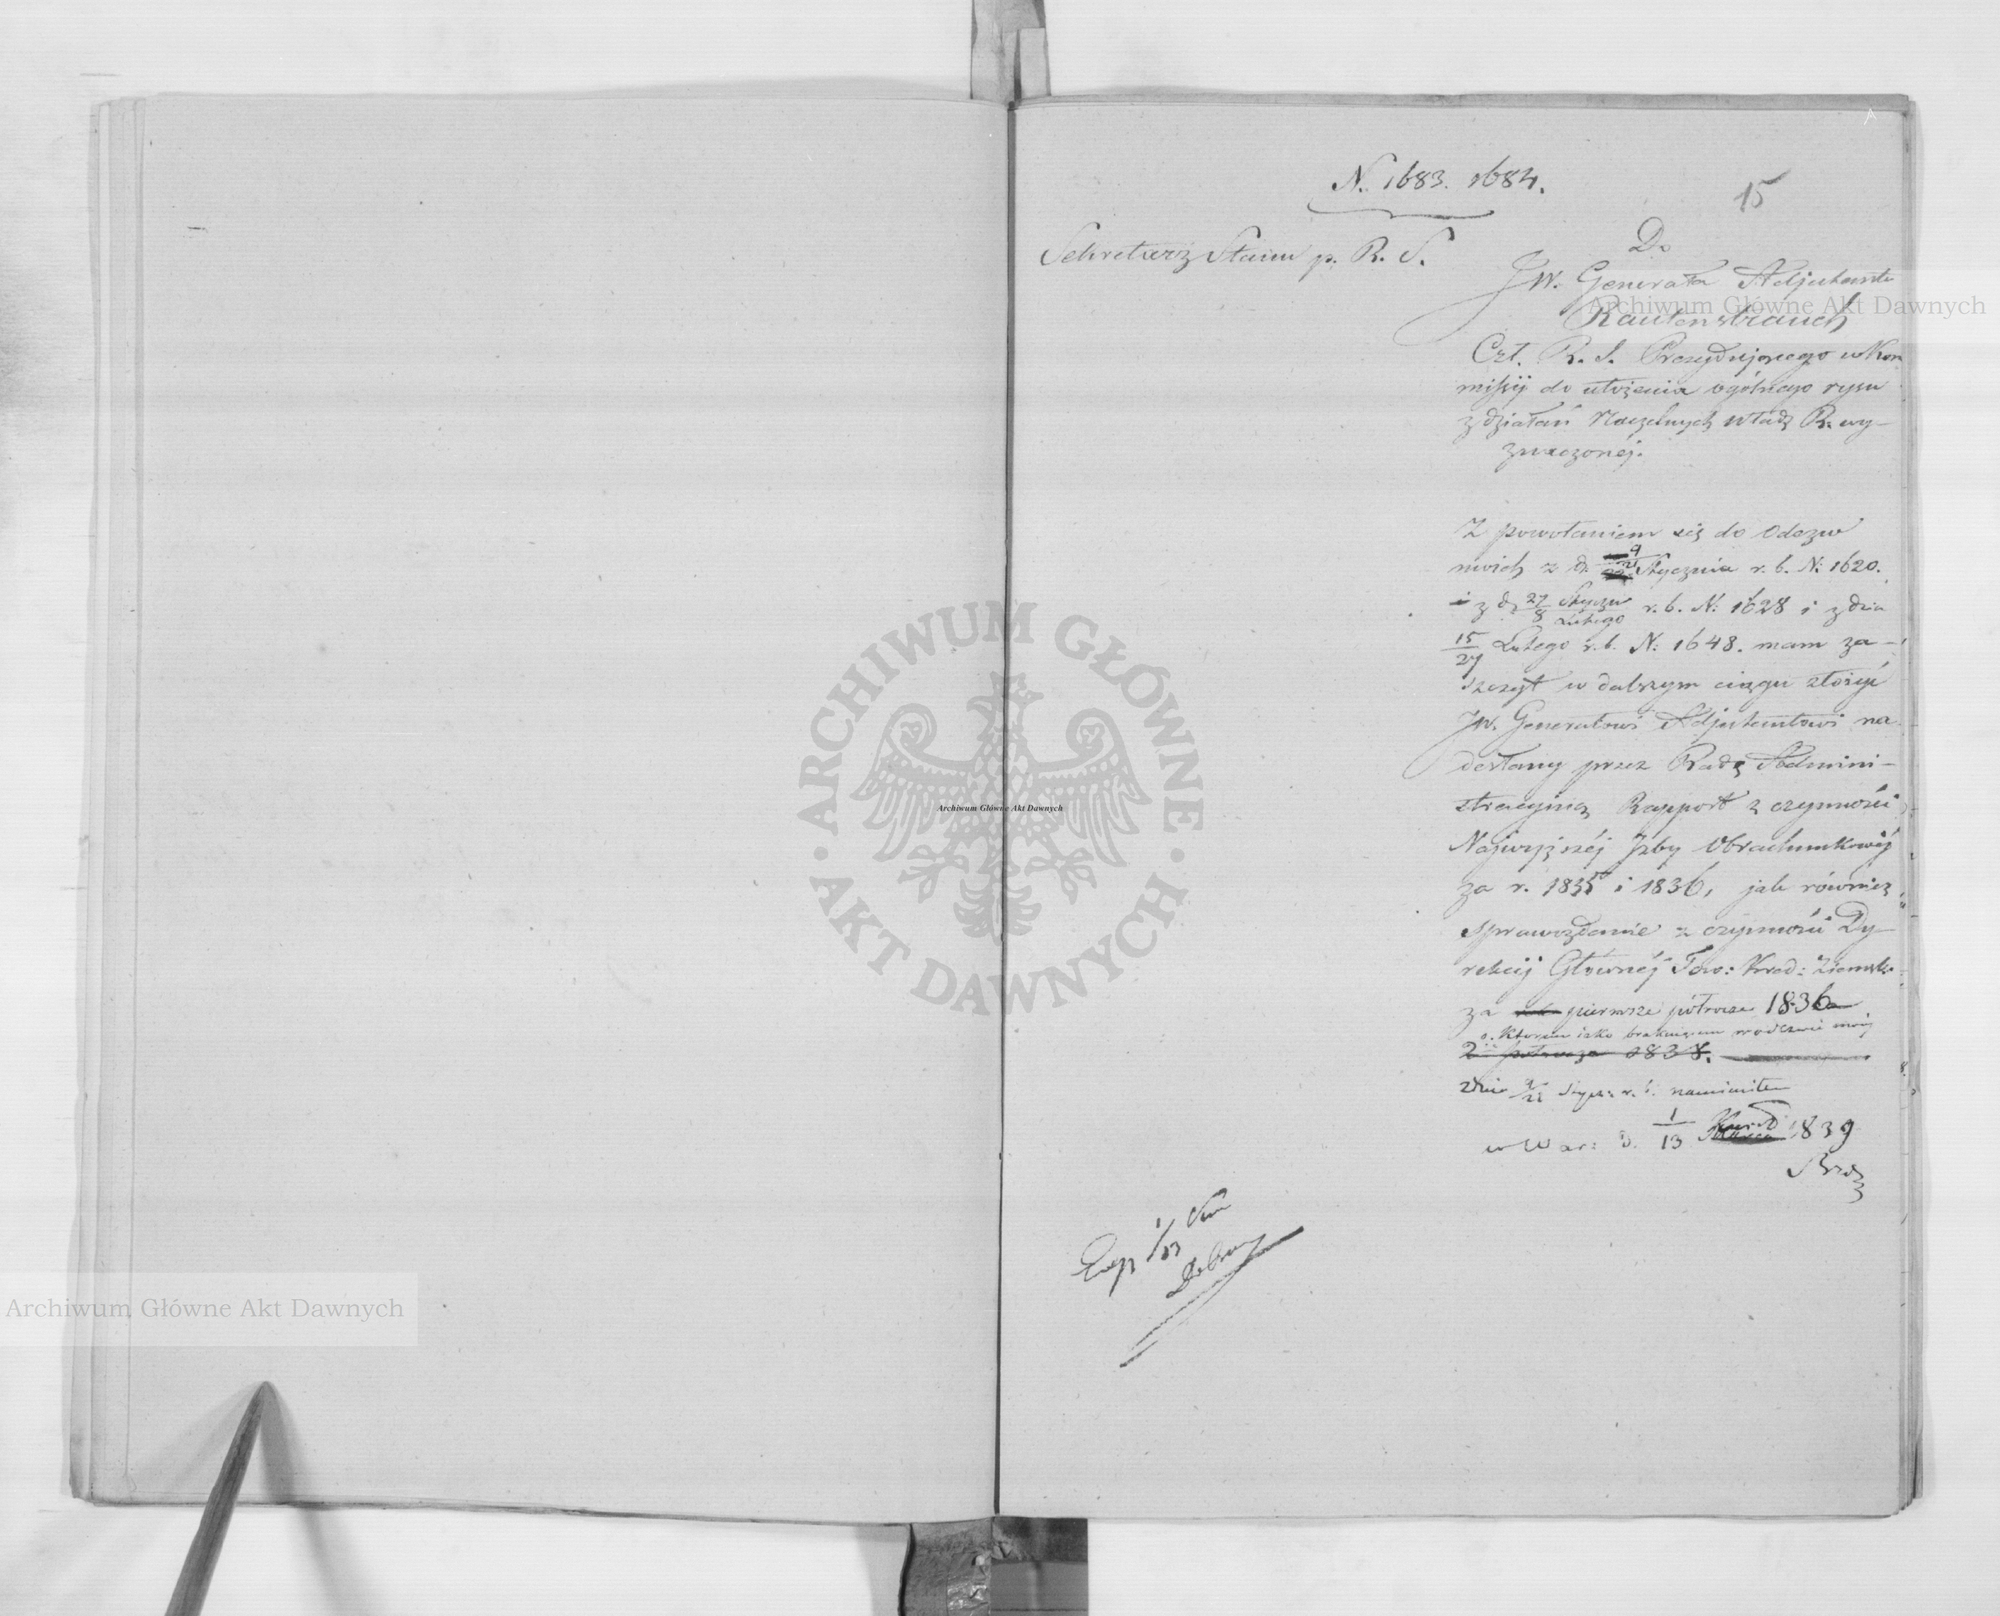 N. 1683. 1684.
15
Sekretarz Stanu p. R. S.
Do
JW. Generała Adjutanta
Rautenstrauch
Czł. R. S. Prezydującego w Kom
missyi do ułożenia ogólnego rysu
z działań Naczelnych Władz R. wy-
znaczonéj.
Z powołaniem się do Odezw
moich z d. 9/21 Stycznia r. b. N: 1620.
i z d. 27 Stycz/8 Lutego r. b. N: 1628 i z dnia
15/27 Lutego r. b. N: 1648. mam za-
szczyt w dalszym ciągu złożyć
JW. Generałowi Adjutantowi na
desłany przez Radę Admini-
stracyjną Rapport z czynności
Najwyższéj Izby Obrachunkowéj
za r. 1835 i 1836, jak również
sprawozdanie z czynności Dy-
rekcyi Głównéj Tow: Kred: Ziemsk:
za pierwsze półrocze 1836
o którem jako brakującem w odezwie mojéj
2 półrocza 1838.
z dnia 9/21 Stycz: r. b. namieniłem
w War: d. 1/13 1839
Exp 1/13
Archiwum Główne Akt Dawnych
Archiwum Główne Akt Dawnych
Archiwum Główne Akt Dawnych
ARCHIWUM GŁÓWNE
AKT DAWNYCH